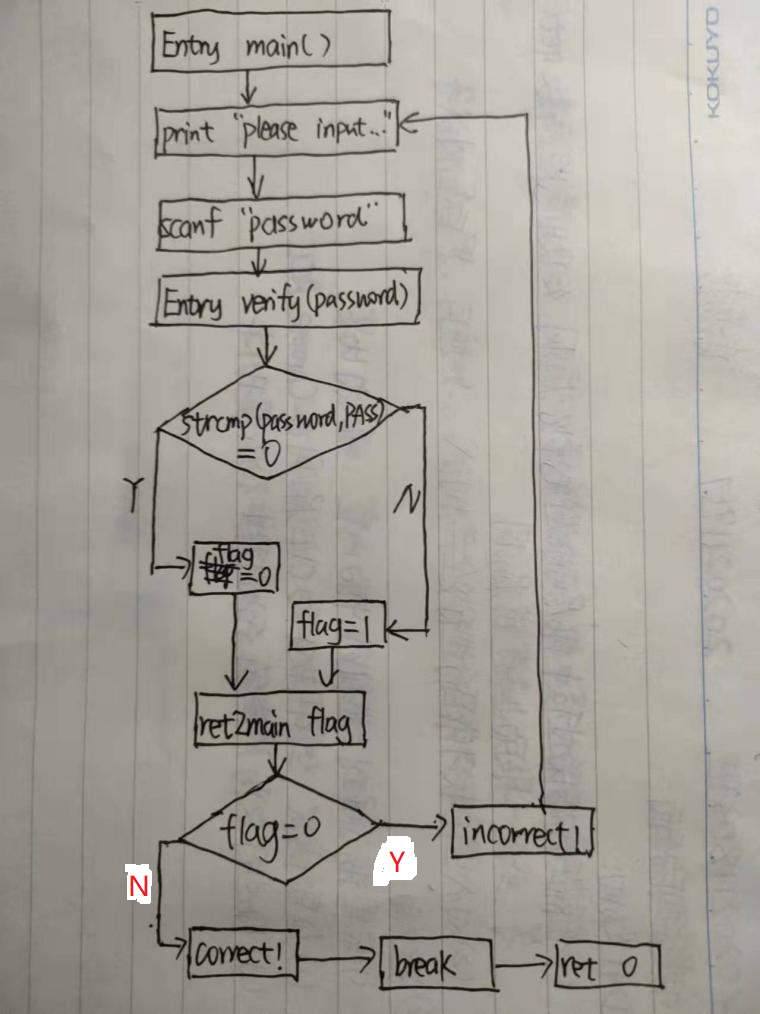 KOKUYO
Entry main()
print "please input..."
scanf "password"
Entry verify(password)
strcmp(password,PASS)
=0
Y
N
flag
=0
flag=1
ret2main flag
flag=0
Y
incorrect!
N
correct!
break
ret 0